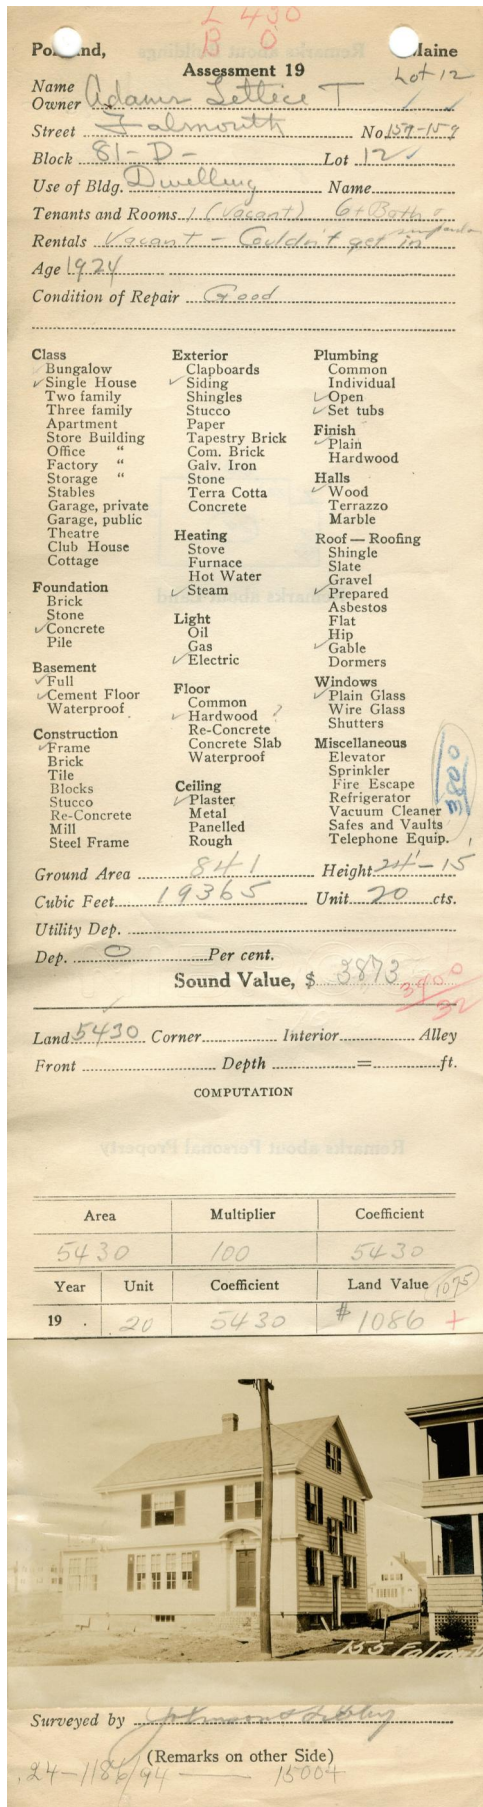 L 430
B 0
Portland, Maine
Assessment 19
Lot 12
Name
Owner Adams Lettice T
Street Falmouth No. 157-159
Block 81-D- Lot 12
Use of Bldg. Dwelling Name
Tenants and Rooms 1 (Vacant) 6+Bath &
Rentals Vacant - Couldn't get in
Age 1924
Condition of Repair Good
Class
Bungalow
✓ Single House
Two family
Three family
Apartment
Store Building
Office "
Factory "
Storage "
Stables
Garage, private
Garage, public
Theatre
Club House
Cottage
Foundation
Brick
Stone
✓ Concrete
Pile
Basement
✓ Full
✓ Cement Floor
Waterproof
Construction
✓ Frame
Brick
Tile
Blocks
Stucco
Re-Concrete
Mill
Steel Frame
Exterior
Clapboards
✓ Siding
Shingles
Stucco
Paper
Tapestry Brick
Com. Brick
Galv. Iron
Stone
Terra Cotta
Concrete
Heating
Stove
Furnace
Hot Water
✓ Steam
Light
Oil
Gas
✓ Electric
Floor
Common
✓ Hardwood ?
Re-Concrete
Concrete Slab
Waterproof
Ceiling
✓ Plaster
Metal
Panelled
Rough
Plumbing
Common
Individual
✓ Open
✓ Set tubs
Finish
✓ Plain
Hardwood
Halls
✓ Wood
Terrazzo
Marble
Roof — Roofing
Shingle
Slate
Gravel
✓ Prepared
Asbestos
Flat
Hip
✓ Gable
Dormers
Windows
✓ Plain Glass
Wire Glass
Shutters
Miscellaneous
Elevator
Sprinkler
Fire Escape
Refrigerator
Vacuum Cleaner
Safes and Vaults
Telephone Equip.
3800
Ground Area 841 Height 24'-15
Cubic Feet 19365 Unit 20 cts.
Utility Dep.
Dep. 0 Per cent.
Sound Value, $ 3873
3900
32
Land 5430 Corner Interior Alley
Front Depth = ft.
COMPUTATION
Area Multiplier Coefficient
5430 100 5430
Year Unit Coefficient Land Value 1075
19 . 20 5430 $1086 +
155 Falmouth
Surveyed by Johnson & Libby
(Remarks on other Side)
24-1186/94 — 15004